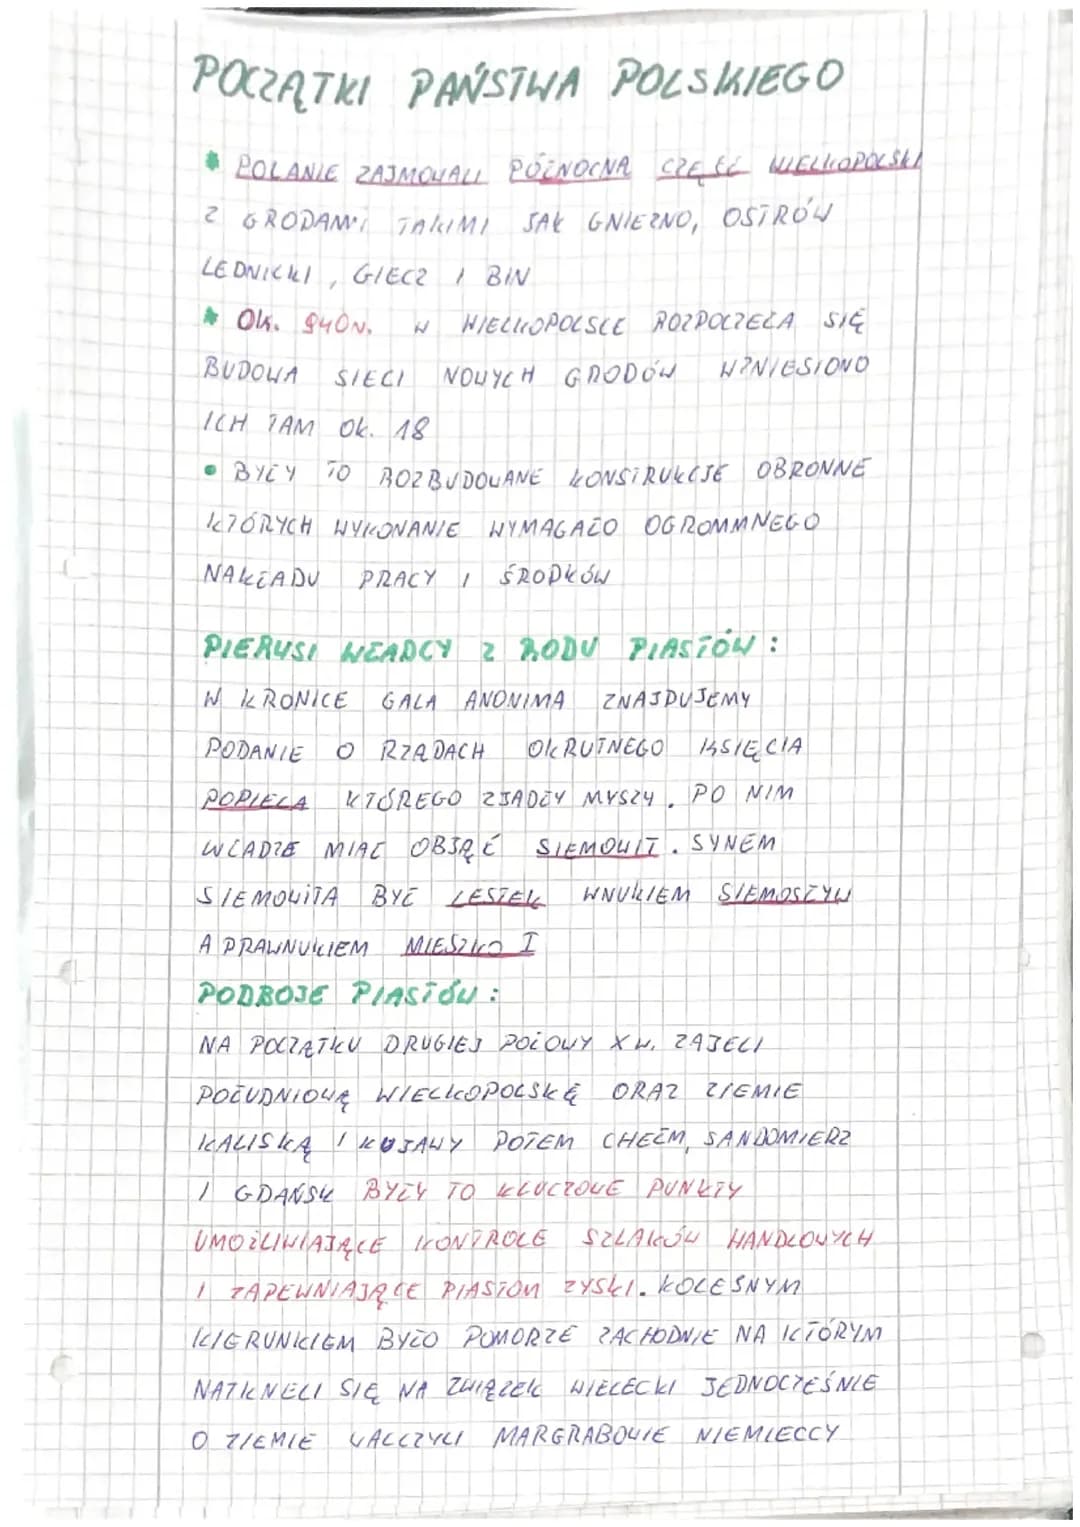 POCZĄTKI PAŃSTWA POLSKIEGO
* POLANIE ZAJMOWALI PÓŁNOCNĄ CZĘŚĆ WIELKOPOLSKI
Z GRODAMI TAKIMI JAK GNIEZNO, OSTRÓW
LEDNICKI, GIECZ I BIN
* OK. 940N. W WIELKOPOLSCE ROZPOCZEŁA SIĘ
BUDOWA SIECI NOWYCH GRODÓW WZNIESIONO
ICH TAM OK. 18
• BYŁY TO ROZBUDOWANE KONSTRUKCJE OBRONNE
KTÓRYCH WYKONANIE WYMAGAŁO OGROMMNEGO
NAKŁADU PRACY I ŚRODKÓW
PIERWSI WŁADCY Z RODU PIASTÓW:
W KRONICE GALA ANONIMA ZNAJDUJEMY
PODANIE O RZĄDACH OKRUTNEGO KSIĘCIA
POPIELA KTÓREGO ZJADŁY MYSZY. PO NIM
WŁADZE MIAŁ OBJĄĆ SIEMOWIT. SYNEM
SIEMOWITA BYŁ LESTEK WNUKIEM SIEMOSZYW
A PRAWNUKIEM MIESZKO I
PODBOJE PIASTÓW:
NA POCZĄTKU DRUGIEJ POŁOWY X W. ZAJELI
POŁUDNIOWĄ WIELKOPOLSKĘ ORAZ ZIEMIE
KALISKĄ I KUJAWY POTEM CHEŁM, SANDOMIERZ
I GDAŃSK BYŁY TO KLUCZOWE PUNKTY
UMOŻLIWIAJĄCE KONTROLE SZLAKÓW HANDLOWYCH
I ZAPEWNIAJĄCE PIASTOM ZYSKI. KOLEJNYM
KIERUNKIEM BYŁO POMORZE ZACHODNIE NA KTÓRYM
NATKNELI SIĘ NA ZWIĄZEK WIELECKI JEDNOCZEŚNIE
O ZIEMIE WALCZYLI MARGRABOWIE NIEMIECCY